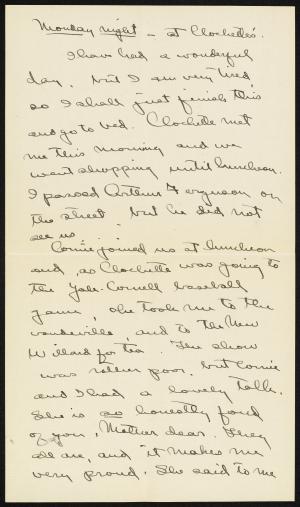 Monday night - at Clochette's.
I have had a wonderful
day, but I am very tired,
so I shall just finish this
and go to bed. Clochette met
me this morning and we
went shopping until luncheon.
I passed Arthur Ferguson on
the street but he did not
see us.
Connie joined us at luncheon
and, as Clochette was going to
the Yale-Cornell baseball
game, she took me to the
vaudeville, and to the New
Willard for tea. The show
was rather poor, but Connie
and I had a lovely talk.
She is so honestly fond
of you, Mother dear. They
all are, and it makes me
very proud. She said to me